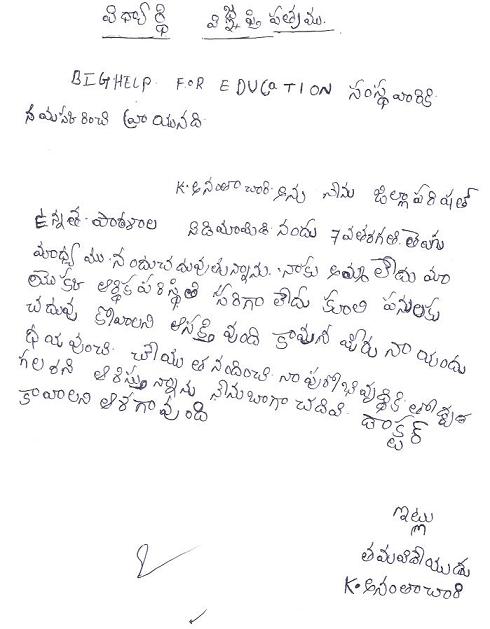 విద్యార్థి విజ్ఞప్తి పత్రము.
BIGHELP FOR EDUCATION సంస్థవారికి
నమస్కరించి వ్రాయునది
K. అనంతాచారి అను నేను జిల్లా పరిషత్
ఉన్నత పాఠశాల నందు 7వతరగతి తెలుగు
మాధ్యమము నందు చదువుతున్నాను. నాకు అమ్మ లేదు మా
యొక్క ఆర్థిక పరిస్థితి సరిగా లేదు కూలి పనులకు
చదువు కోవాలని ఆసక్తి వుంది కావున మీరు నా యందు
దయవుంచి చేయూతనందించి నా పురోభివృద్ధికి తోడ్పడ
గలరని ఆశిస్తున్నాను నేను బాగా చదివి డాక్టర్
కావాలని ఆశగా వుంది
ఇట్లు
తమవిదేయుడు
K. అనంతాచారి